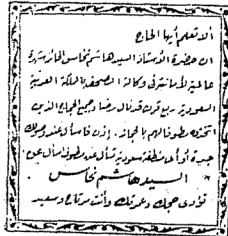 ألا تعلم أيها الحاج
ان حضرة الأستاذ السيد هاشم نحاس الحائز شهرة
عالمية لأمانته في وكالة الصحف بالمملكة العربية
السعودية ربع قرن قد نال رضاء جميع الحجاج الذين
اتخذوه مطوفا لهم بالحجاز. إذن فاسأل عند وصولك
جدة أو أي منطقة سعودية تسأل عن مطوف اسأل عن
السيد هاشم نحاس
تؤدى حجك وعمرتك وأنت مرتاح وسعيد